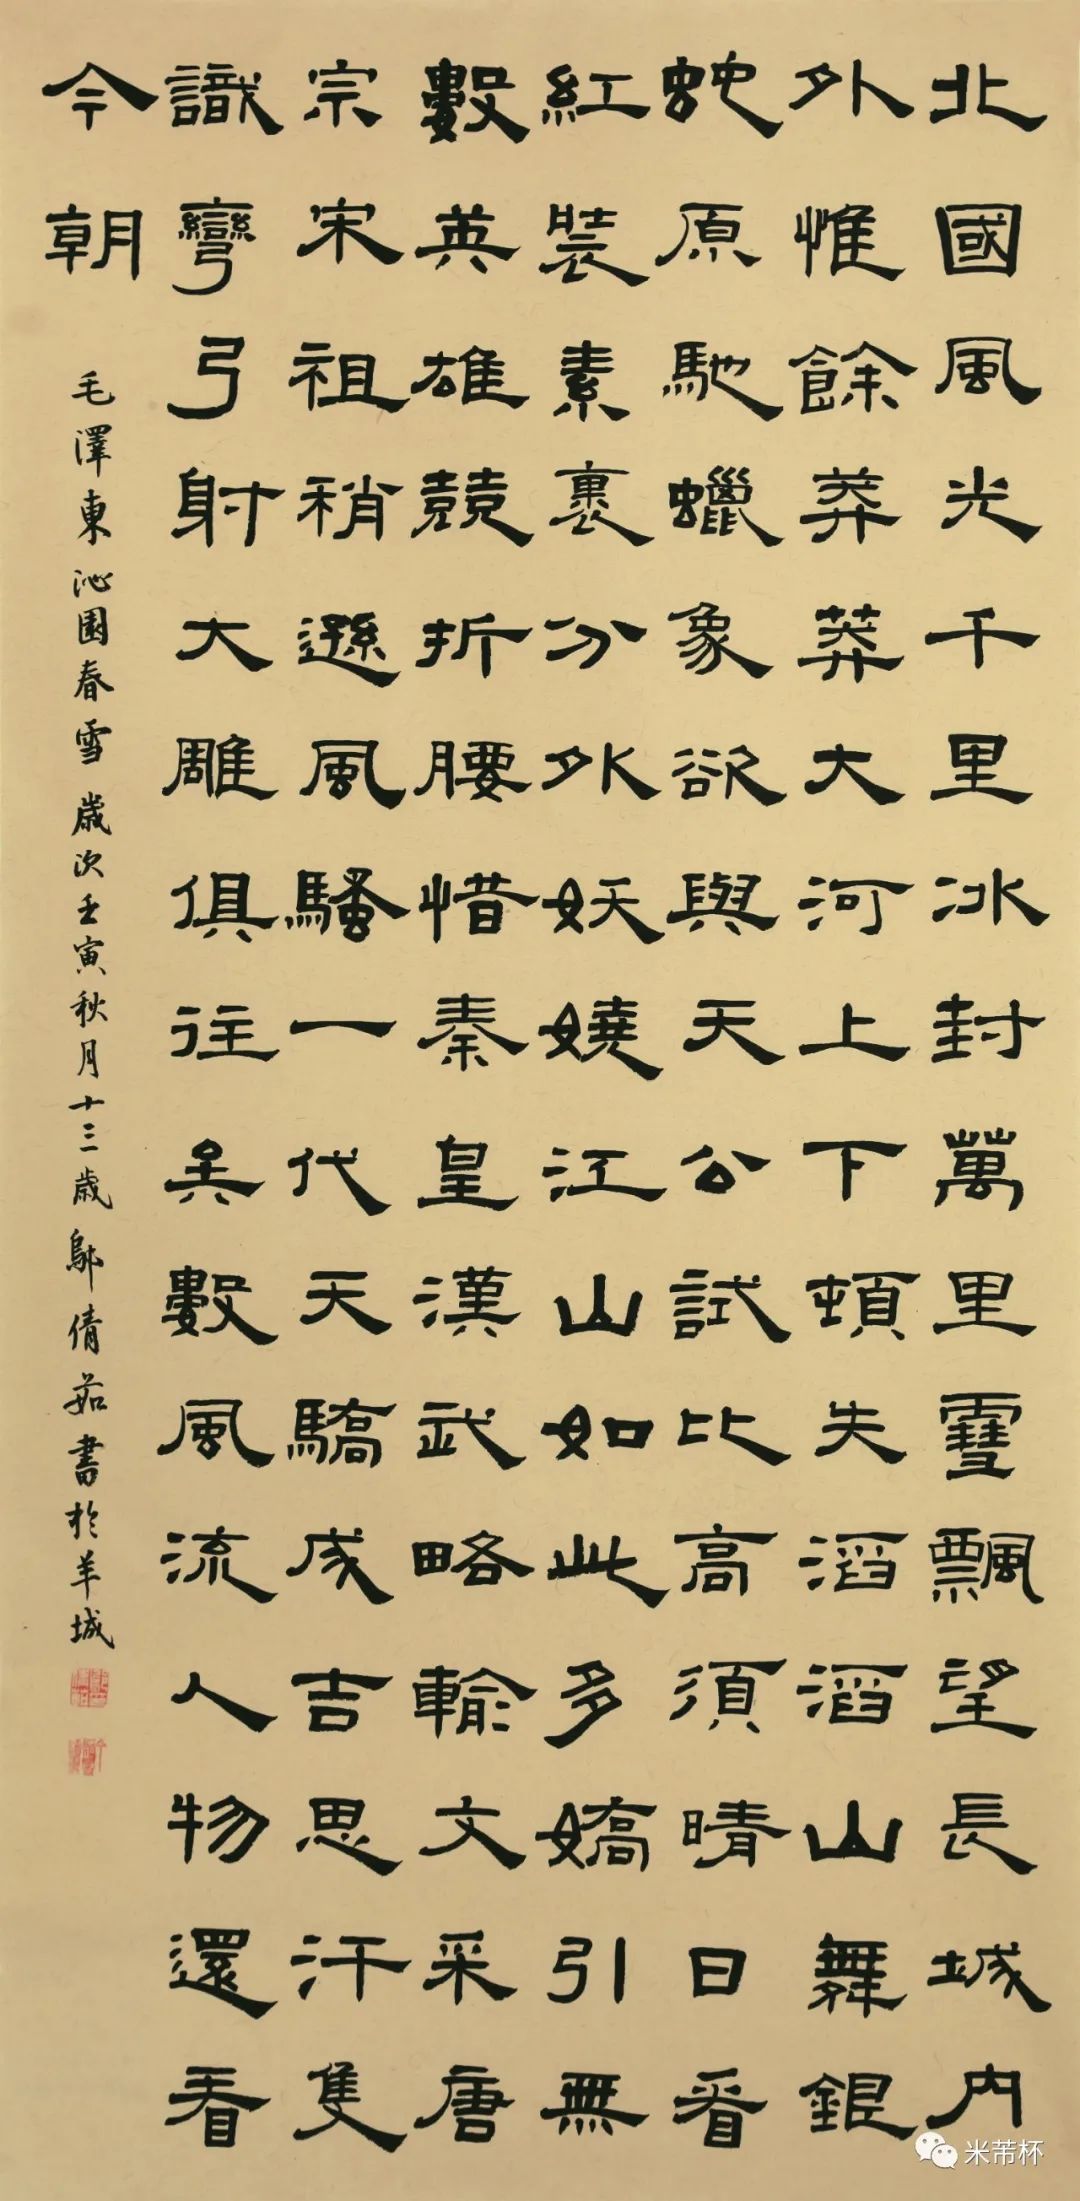 北國風光千里冰封萬里雪飄望長城内
外惟餘莽莽大河上下頓失滔滔山舞銀
蛇原馳蠟象欲與天公試比高須晴日看
紅裝素裹分外妖嬈江山如此多嬌引無
數英雄競折腰惜秦皇漢武略輸文采唐
宗宋祖稍遜風騷一代天驕成吉思汗隻
識彎弓射大雕俱往矣數風流人物還看
今朝
毛澤東沁園春雪歲次壬寅秋月十三歲鄔倩茹書於羊城
米芾杯